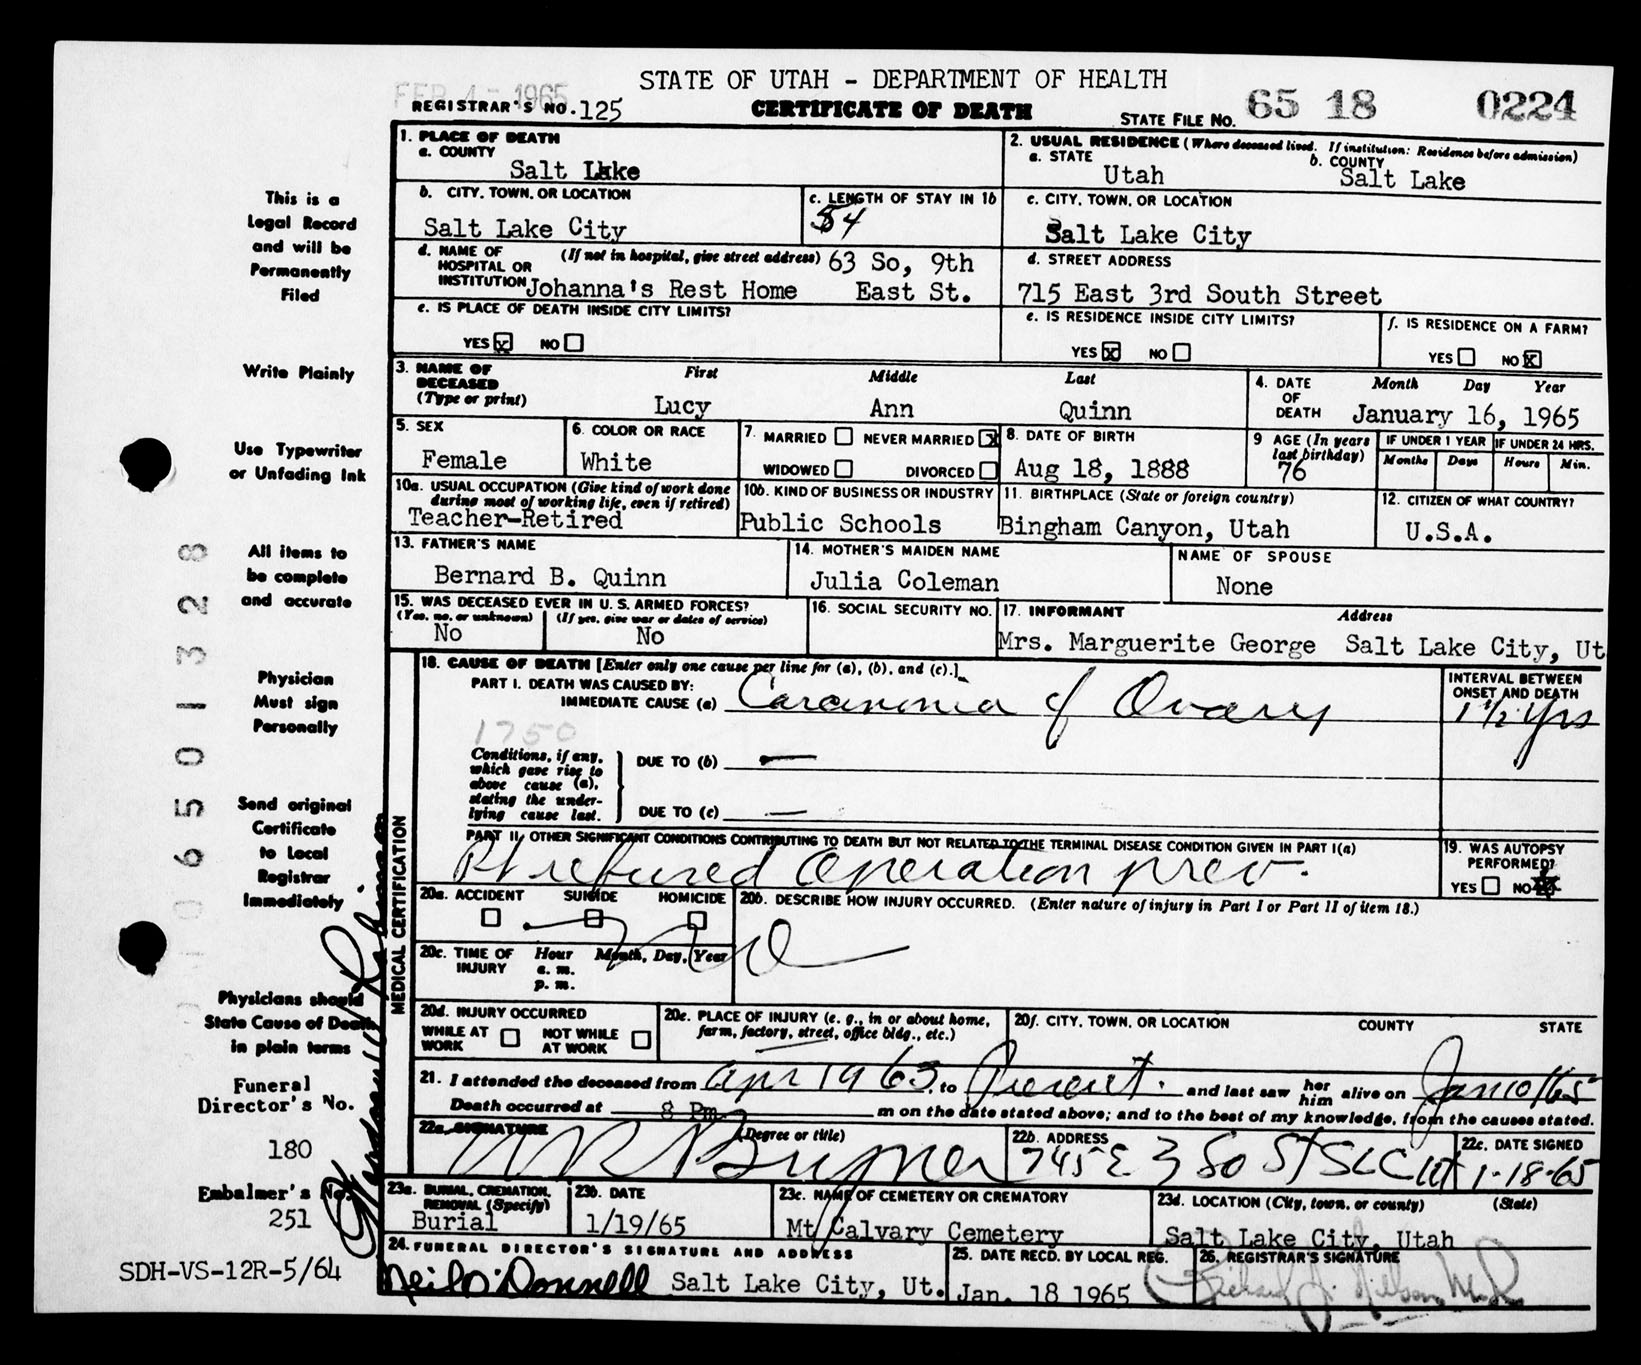 STATE OF UTAH - DEPARTMENT OF HEALTH
FEB 1965
REGISTRAR'S NO. 125
CERTIFICATE OF DEATH
STATE FILE NO. 65 18 0224
1. PLACE OF DEATH
a. COUNTY
Salt Lake
2. USUAL RESIDENCE (Where deceased lived. If institution: Residence before admission)
a. STATE b. COUNTY
Utah Salt Lake
b. CITY, TOWN, OR LOCATION
Salt Lake City
c. LENGTH OF STAY IN 1b
54
c. CITY, TOWN, OR LOCATION
Salt Lake City
d. NAME OF HOSPITAL OR INSTITUTION (If not in hospital, give street address) 63 So, 9th
Johanna's Rest Home East St.
d. STREET ADDRESS
715 East 3rd South Street
e. IS PLACE OF DEATH INSIDE CITY LIMITS?
YES x NO
e. IS RESIDENCE INSIDE CITY LIMITS?
YES x NO
f. IS RESIDENCE ON A FARM?
YES NO x
3. NAME OF DECEASED (Type or print)
First Middle Last
Lucy Ann Quinn
4. DATE OF DEATH
Month Day Year
January 16, 1965
5. SEX
Female
6. COLOR OR RACE
White
7. MARRIED NEVER MARRIED x
WIDOWED DIVORCED
8. DATE OF BIRTH
Aug 18, 1888
9 AGE (In years last birthday)
76
IF UNDER 1 YEAR
Months Days
IF UNDER 24 HRS.
Hours Min.
10a. USUAL OCCUPATION (Give kind of work done during most of working life, even if retired)
Teacher-Retired
10b. KIND OF BUSINESS OR INDUSTRY
Public Schools
11. BIRTHPLACE (State or foreign country)
Bingham Canyon, Utah
12. CITIZEN OF WHAT COUNTRY?
U.S.A.
13. FATHER'S NAME
Bernard B. Quinn
14. MOTHER'S MAIDEN NAME
Julia Coleman
NAME OF SPOUSE
None
15. WAS DECEASED EVER IN U. S. ARMED FORCES?
(Yes, no, or unknown) (If yes, give war or dates of service)
No No
16. SOCIAL SECURITY NO.
17. INFORMANT Address
Mrs. Marguerite George Salt Lake City, Ut
MEDICAL CERTIFICATION
18. CAUSE OF DEATH [Enter only one cause per line for (a), (b), and (c).]
PART I. DEATH WAS CAUSED BY:
IMMEDIATE CAUSE (a) Carcinonia of Ovary
INTERVAL BETWEEN ONSET AND DEATH
1 1/2 yrs
1750
Conditions, if any, which gave rise to above cause (a), stating the underlying cause last.
DUE TO (b) —
DUE TO (c) —
PART II. OTHER SIGNIFICANT CONDITIONS CONTRIBUTING TO DEATH BUT NOT RELATED TO THE TERMINAL DISEASE CONDITION GIVEN IN PART I(a)
Pt refused operation prev.
19. WAS AUTOPSY PERFORMED?
YES NO
20a. ACCIDENT SUICIDE HOMICIDE
20b. DESCRIBE HOW INJURY OCCURRED. (Enter nature of injury in Part I or Part II of item 18.)
no
20c. TIME OF INJURY
Hour Month, Day, Year
a. m.
p. m.
20d. INJURY OCCURRED
WHILE AT WORK NOT WHILE AT WORK
20e. PLACE OF INJURY (e. g., in or about home, farm, factory, street, office bldg., etc.)
20f. CITY, TOWN, OR LOCATION COUNTY STATE
21. I attended the deceased from Apr 1963 to Present. and last saw her him alive on Jan 10/65
Death occurred at 8 Pm m on the date stated above; and to the best of my knowledge, from the causes stated.
22a. SIGNATURE (Degree or title)
22b. ADDRESS
745 E 3 So St SLC Ut
22c. DATE SIGNED
1-18-65
23a. BURIAL, CREMATION, REMOVAL (Specify)
Burial
23b. DATE
1/19/65
23c. NAME OF CEMETERY OR CREMATORY
Mt Calvary Cemetery
23d. LOCATION (City, town, or county) (State)
Salt Lake City, Utah
24. FUNERAL DIRECTOR'S SIGNATURE AND ADDRESS
Neil O'Donnell Salt Lake City, Ut.
25. DATE RECD. BY LOCAL REG.
Jan. 18 1965
26. REGISTRAR'S SIGNATURE
This is a
Legal Record
and will be
Permanently
Filed
Write Plainly
Use Typewriter
or Unfading Ink
All items to
be complete
and accurate
Physician
Must sign
Personally
Send original
Certificate
to Local
Registrar
Immediately
Physicians should
State Cause of Death
in plain terms
Funeral
Director's No.
180
Embalmer's No.
251
SDH-VS-12R-5/64
06501328